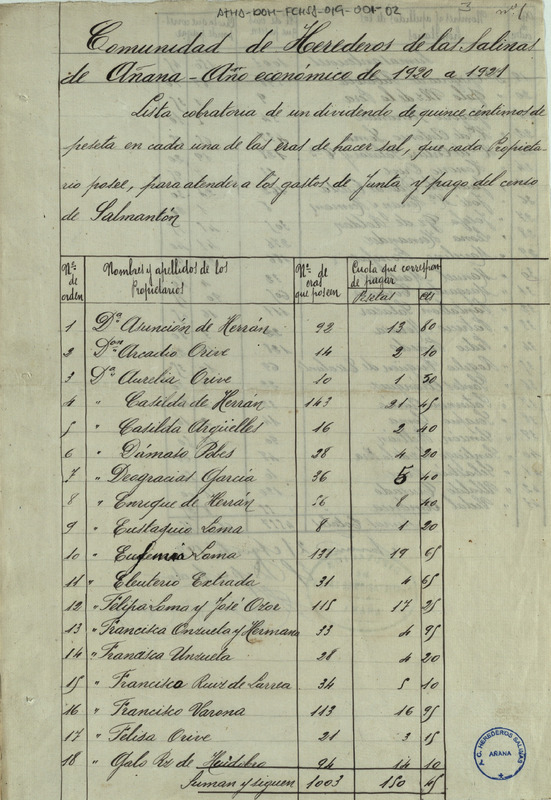 ATHA-DOH-FCHSA-019-001-02
3 nº 1
Comunidad de Herederos de las Salinas
de Añana - Año económico de 1920 a 1921
Lista cobratoria de un dividendo de quince céntimos de
peseta en cada una de las eras de hacer sal, que cada Propieta-
rio posee, para atender a los gastos de Junta y pago del censo
de Salmantón
Nº de orden Nombres y apellidos de los Propietarios Nº de eras que poseen Cuota que correspon- de pagar
Pesetas cts
1 Dª Asunción de Herrán 92 13 80
2 Don Arcadio Orive 14 2 10
3 Dª Aurelia Orive 10 1 50
4 " Casilda de Herrán 143 21 45
5 " Casilda Argüelles 16 2 40
6 " Dámaso Pobes 28 4 20
7 " Deogracias García 36 5 40
8 " Enrique de Herrán 56 8 40
9 " Eustaquio Loma 8 1 20
10 " Eufemia Loma 131 19 65
11 " Eleuterio Extrada 31 4 65
12 " Felipa Loma y José Ozor 115 17 25
13 " Francisca Onzuela y Hermana 33 4 95
14 " Francisca Unzuela 28 4 20
15 " Francisco Ruiz de Larrea 34 5 10
16 " Francisco Varona 113 16 95
17 " Felisa Orive 21 3 15
18 " Galo Rz de Huidobro 94 14 10
Suman y siguen 1003 150 45
A. C. HEREDEROS SALINAS
AÑANA